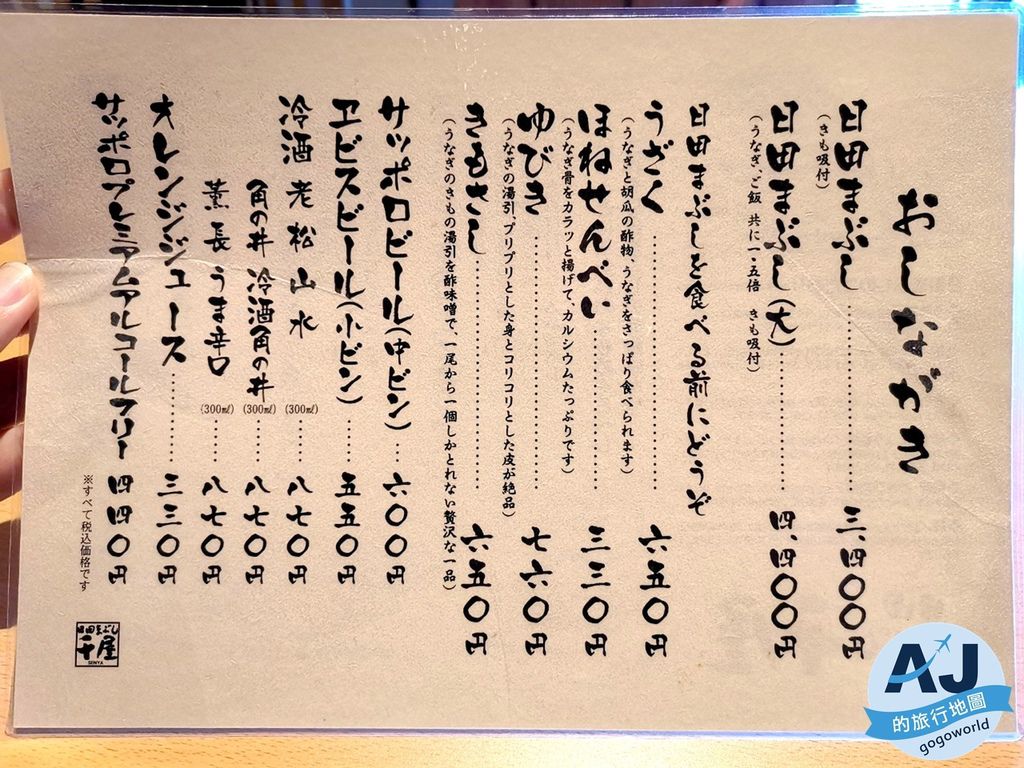 おしながき
日田まぶし……………三、四〇〇円
(きも吸付)
日田まぶし(大)…………四、四〇〇円
(うなぎ、ご飯 共に一・五倍 きも吸付)
日田まぶしを食べる前にどうぞ
うざく……………………六五〇円
(うなぎと胡瓜の酢物、うなぎをさっぱり食べられます)
ほねせんべい……………三三〇円
(うなぎ骨をカラッと揚げて、カルシウムたっぷりです)
ゆびき……………………七六〇円
(うなぎの湯引、プリプリとした身とコリコリとした皮が絶品)
きもさし…………………六五〇円
(うなぎのきもの湯引を酢味噌で、一尾から一個しかとれない贅沢な一品)
サッポロビール(中ビン)…六〇〇円
ヱビスビール(小ビン)……五五〇円
冷酒 老松 山水(300㎖)……八七〇円
角の井 冷酒角の井(300㎖)……八七〇円
薫長 うま辛口(300㎖)……八七〇円
オレンジジュース…………三三〇円
サッポロプレミアムアルコールフリー 四四〇円
※すべて税込価格です
日田まぶし
千屋
SENYA
AJ
的旅行地圖
gogoworld